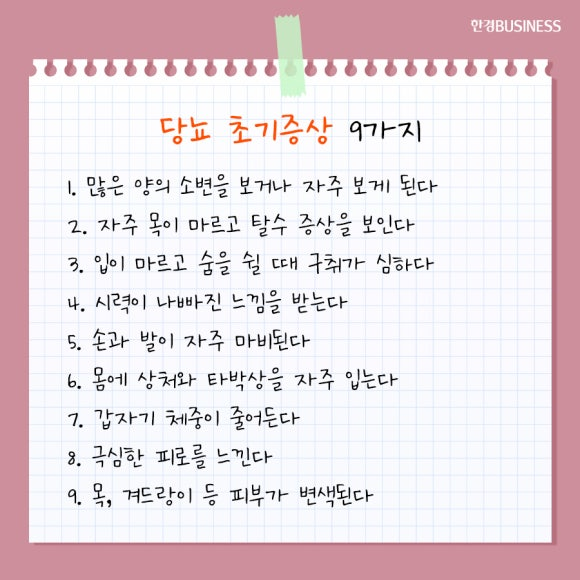 한경BUSINESS
당뇨 초기증상 9가지
1. 많은 양의 소변을 보거나 자주 보게 된다
2. 자주 목이 마르고 탈수 증상을 보인다
3. 입이 마르고 숨을 쉴 때 구취가 심하다
4. 시력이 나빠진 느낌을 받는다
5. 손과 발이 자주 마비된다
6. 몸에 상처와 타박상을 자주 입는다
7. 갑자기 체중이 줄어든다
8. 극심한 피로를 느낀다
9. 목, 겨드랑이 등 피부가 변색된다